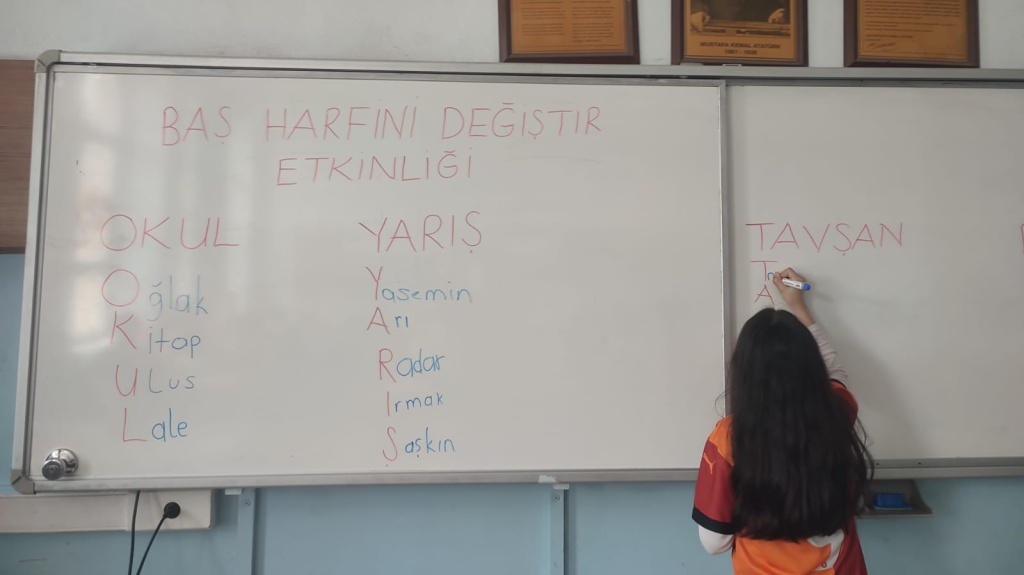 MUSTAFA KEMAL ATATÜRK
1881 - 1938
BAŞ HARFİNİ DEĞİŞTİR
ETKİNLİĞİ
OKUL
Oğlak
Kitap
Ulus
Lale
YARIŞ
Yasemin
Arı
Radar
Irmak
Şaşkın
TAVŞAN
T
A